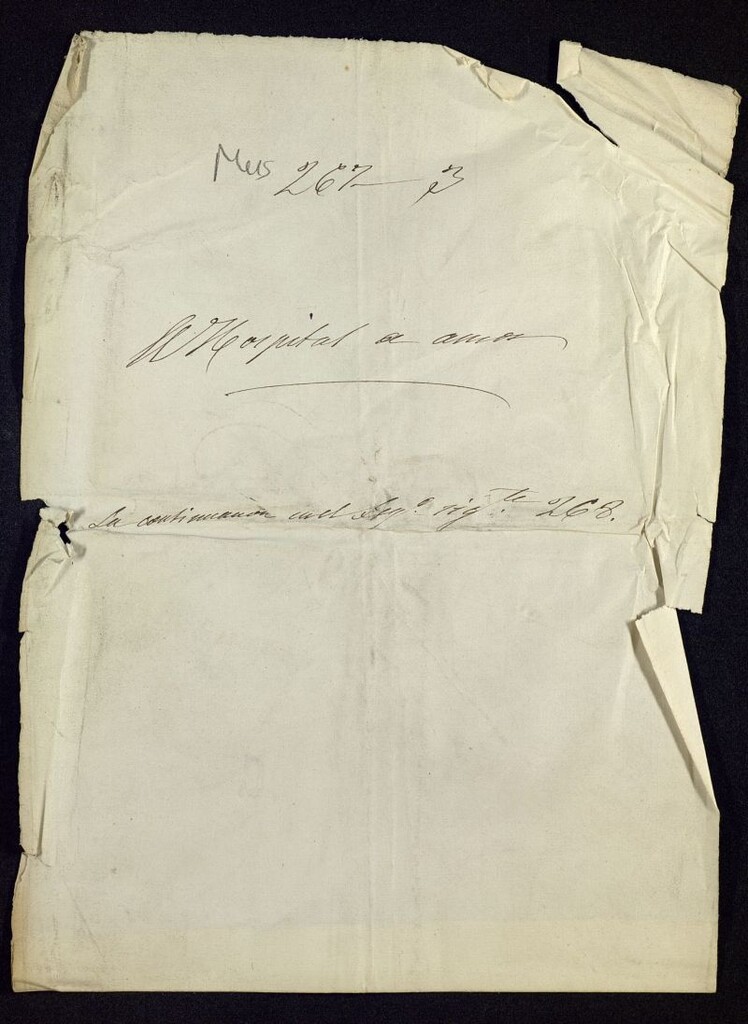 Mus 267-3
El Hospital a amor
La continuacion en el Leg.º sig.te 268.